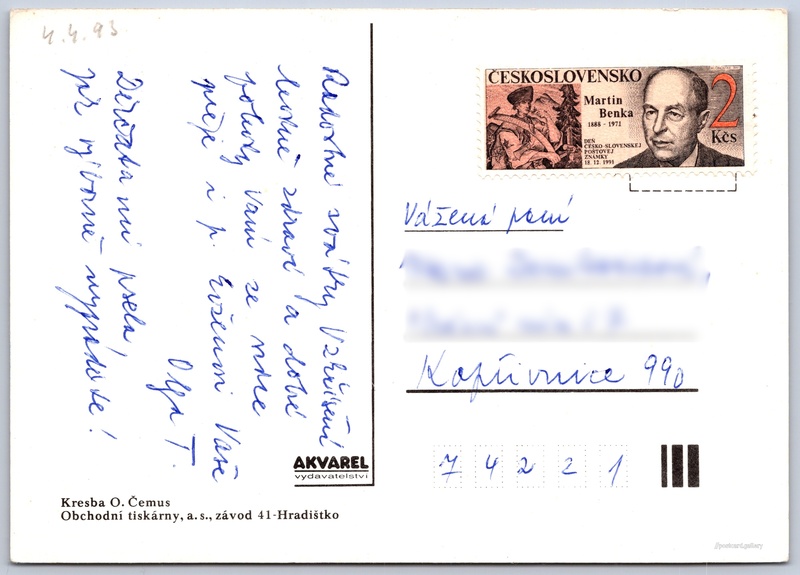 4.4.93
Radostné svátky Vzkříšení
hodně zdraví a dobré
pohody Vám ze srdce
přeje i p. Evženii Vaše
Olga T.
Děvčata mi psela,
jak výborně vypadáte!
AKVAREL
vydavatelství
Kresba O. Čemus
Obchodní tiskárny, a. s., závod 41-Hradištko
ČESKOSLOVENSKO
Martin
Benka
1888 - 1971
DEŇ
ČESKO-SLOVENSKEJ
POŠTOVEJ
ZNÁMKY
18. 12. 1991
2
Kčs
Vážená paní
Kopřivnice 990
74221
postcard.gallery